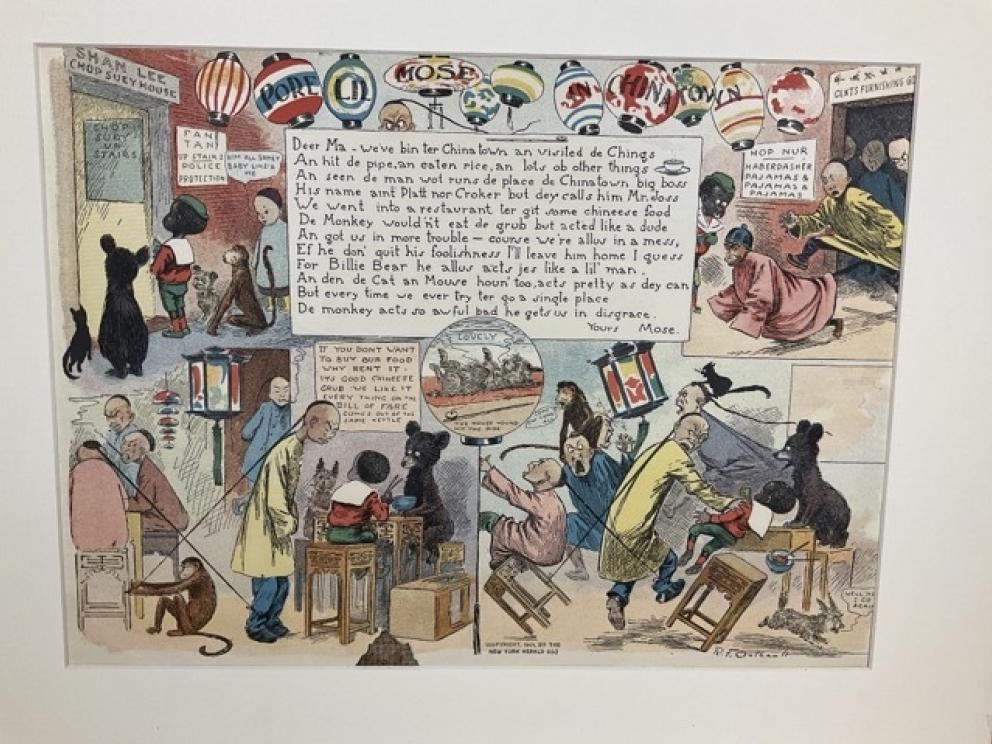 SHAN LEE
CHOP SUEY HOUSE
PORE LIL MOSE IN CHINATOWN
GENTS FURNISHING GO
CHOP
SUEY
UP
STAIRS
FAN
TAN
UP STAIRS
POLICE
PROTECTION
HIM ALL SAMEY
BABY LIKE A
ME
HOP NUR
HABERDASHER
PAJAMAS &
PAJAMAS &
PAJAMAS
Dear Ma - We've bin ter Chinatown an visited de Chings
An hit de pipe, an eaten rice, an lots ob other things
An seen de man wot runs de place de Chinatown big boss
His name aint Platt nor Croker but dey calls him Mr. Joss
We went into a restaurant ter git some chineese food
De Monkey would'nt eat de grub but acted like a dude
An got us in more trouble - course we're allus in a mess,
Ef he don' quit his foolishness I'll leave him home I guess
For Billie Bear he allus acts jes like a lil' man.
An den de Cat an Mouse houn' too, acts pretty as dey can
But every time we ever try ter go a single place
De monkey acts so awful bad he gets us in disgrace.
Yours Mose.
IF YOU DONT WANT
TO BUY OUR FOOD
WHY
IT -
ITS GOOD CHINEESE
GRUB WE LIKE IT
EVERY THING ON THE
BILL OF FARE
COMES OUT OF THE
SAME KETTLE
LOVELY
THE MOUSE HOUND
HIT THE PIPE
COPYRIGHT, 1901, BY THE
NEW YORK HERALD CO
R. F. Outcault